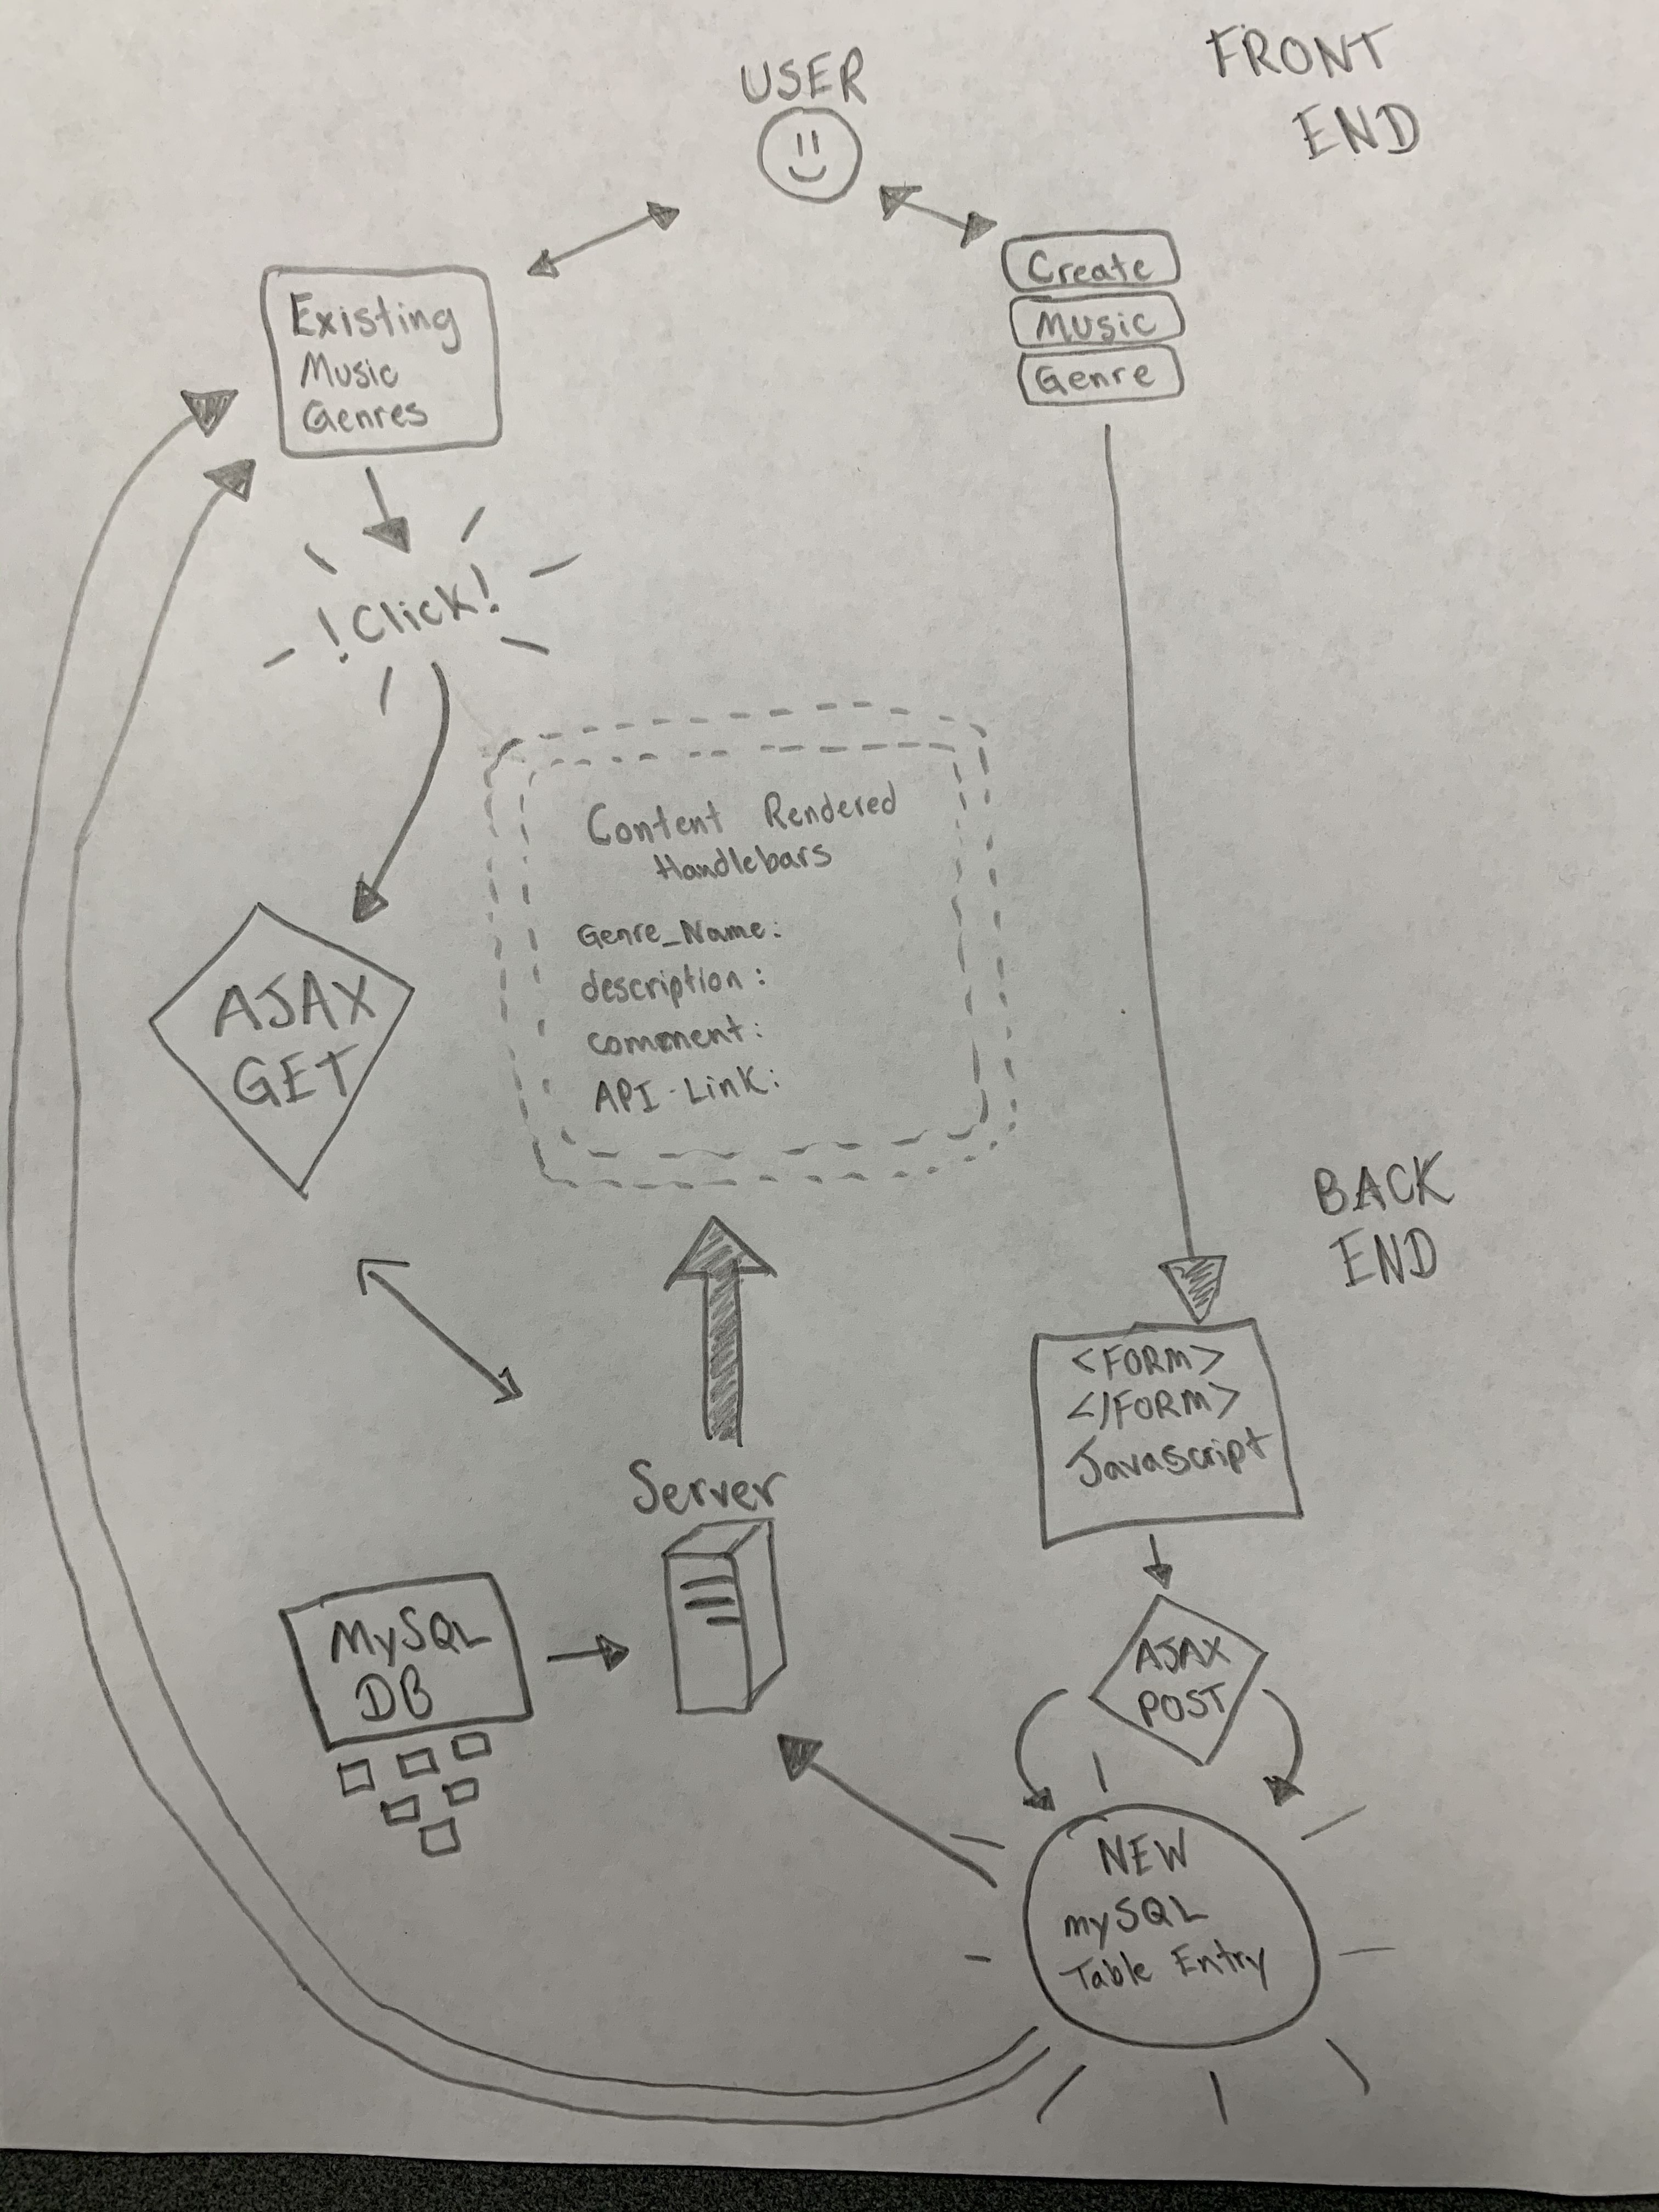 USER
FRONT
END
Existing
Music
Genres
Create
Music
Genre
!Click!
Content Rendered
Handlebars
Genre_Name:
description:
comment:
API-Link:
AJAX
GET
BACK
END
<FORM>
</FORM>
Javascript
Server
MySQL
DB
AJAX
POST
NEW
mySQL
Table Entry